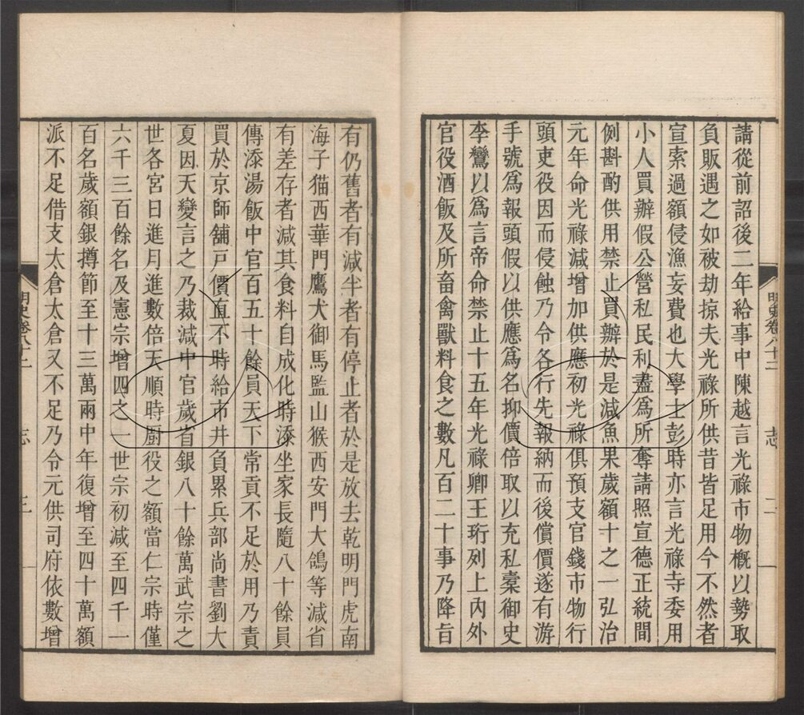 請從前詔後二年給事中陳越言光祿市物槪以勢取
負販遇之如被劫掠夫光祿所供昔皆足用今不然者
宣索過額侵漁妄費也大學士彭時亦言光祿寺委用
小人買辦假公營私民利盡爲所奪請照宣德正統間
例斟酌供用禁止買辦於是減魚果歲額十之一弘治
元年命光祿減增加供應初光祿俱預支官錢市物行
頭吏役因而侵蝕乃令各行先報納而後償價遂有游
手號爲報頭假以供應爲名抑價倍取以充私橐御史
李鸞以爲言帝命禁止十五年光祿卿王珩列上內外
官役酒飯及所畜禽獸料食之數凡百二十事乃降旨
明史卷八十二 志 二
有仍舊者有減半者有停止者於是放去乾明門虎南
海子猫西華門鷹犬御馬監山猴西安門大鴿等減省
有差存者減其食料自成化時添坐家長隨八十餘員
傳添湯飯中官百五十餘員天下常貢不足於用乃責
買於京師舖戸價直不時給市井負累兵部尚書劉大
夏因天變言之乃裁減中官歲省銀八十餘萬武宗之
世各宮日進月進數倍天順時厨役之額當仁宗時僅
六千三百餘名及憲宗增四之一世宗初減至四千一
百名歲額銀撙節至十三萬兩中年復增至四十萬額
派不足借支太倉太倉又不足乃令元供司府依數增
明史卷八十二 志 三